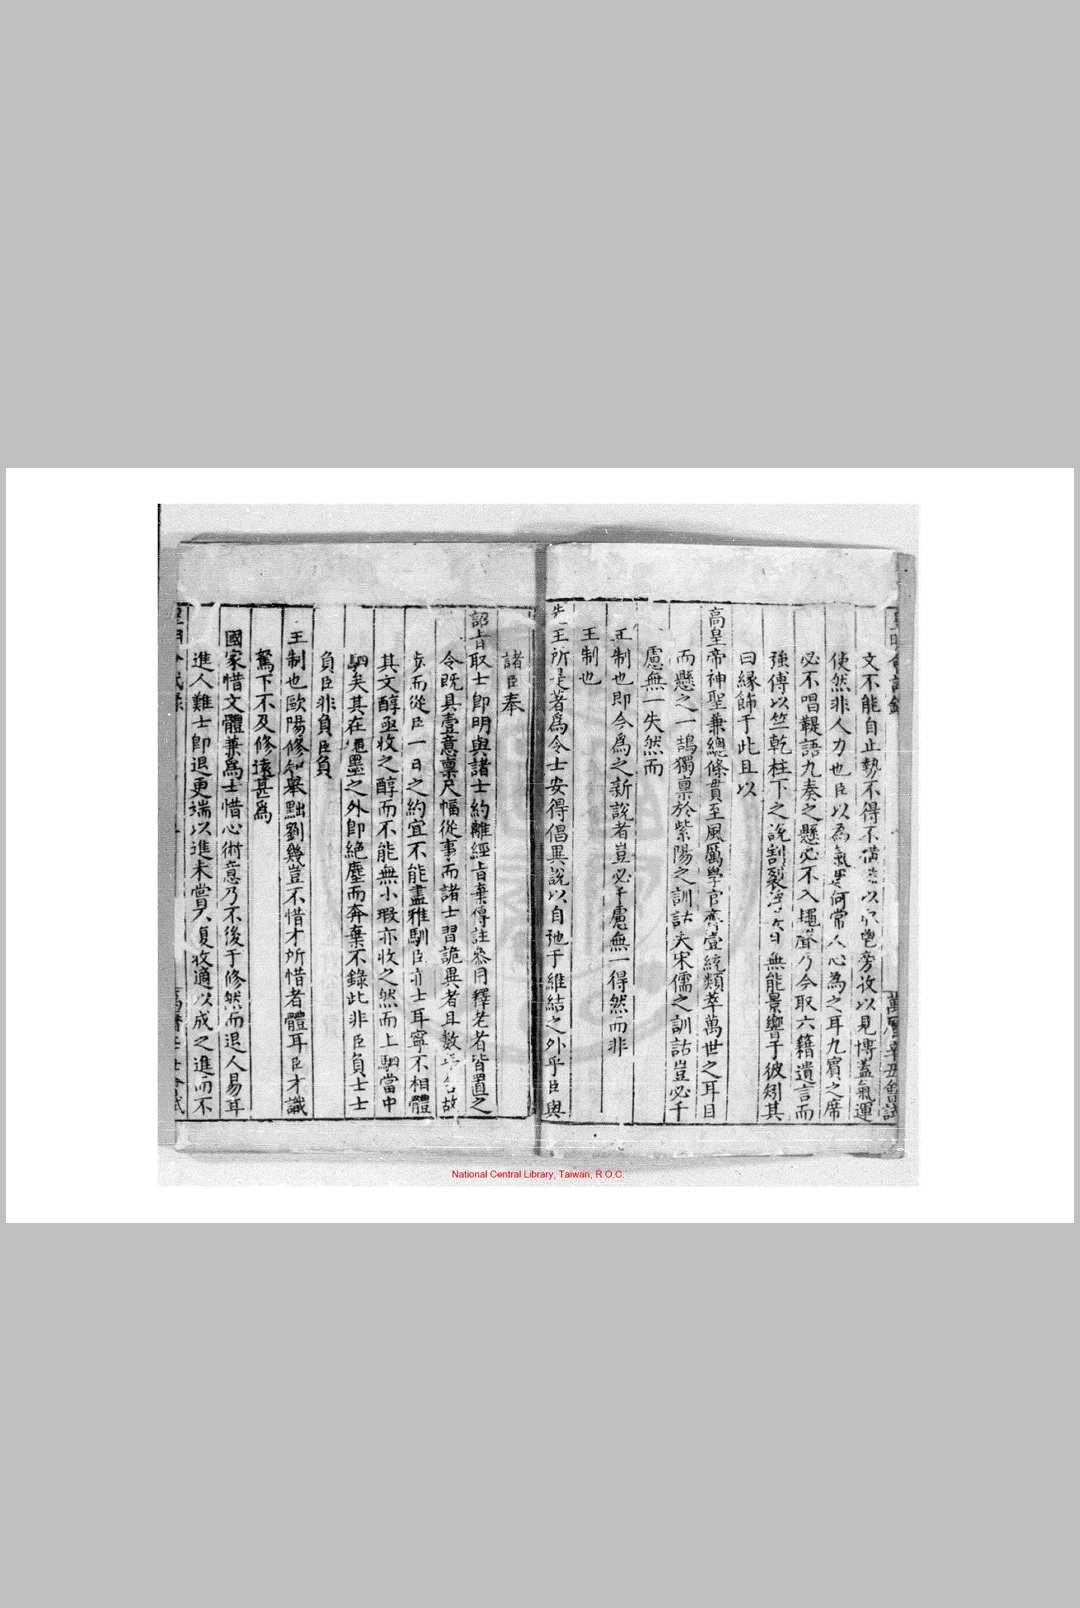 文不能自止勢不得不 以 旁攷以見博蓋氣運
使然非人力也臣以為氣 何常人心為之耳九賓之席
必不唱鞮語九奏之懸必不入 聲乃今取六籍遺言而
強傅以竺乾柱下之說割裂 無能景響于彼剡其
曰緣飾于此且以
高皇帝神聖兼總條貫至風厲學官齊壹統類萃萬世之耳目
而懸之一鵠獨稟於紫陽之訓詁夫宋儒之訓詁豈必千
慮無一失然而
王制也即今為之新說者豈必千慮無一得然而非
王制也
先王所是著為令士安得倡異說以自弛于維結之外乎臣與
諸臣奉
詔旨取士即明與諸士約離經旨棄傳註叅用釋老者皆置之
令既具壹意稟尺幅從事而諸士習詭異者且數 名故
步而從臣一日之約宜不能盡雅馴臣亦士耳寧不相體
其文醇亟收之醇而不能無小瑕亦收之然而上駟當中
駟矣其在繩墨之外即絕塵而奔棄不錄此非臣負士士
負臣非負臣負
王制也歐陽修知舉黜劉幾豈不惜才所惜者體耳臣才識
駑下不及修遠甚為
國家惜文體兼為士惜心術意乃不後于修然而退人易耳
進人難士即退更端以進未嘗不復收適以成之進而不
National Central Library, Taiwan, R.O.C.